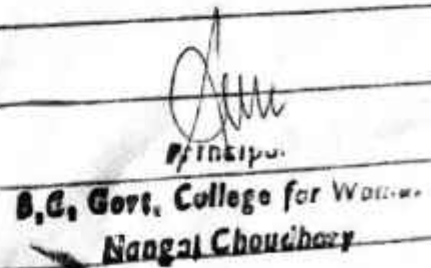 Principal
B.C. Govt. College for
Nangal Choudhary